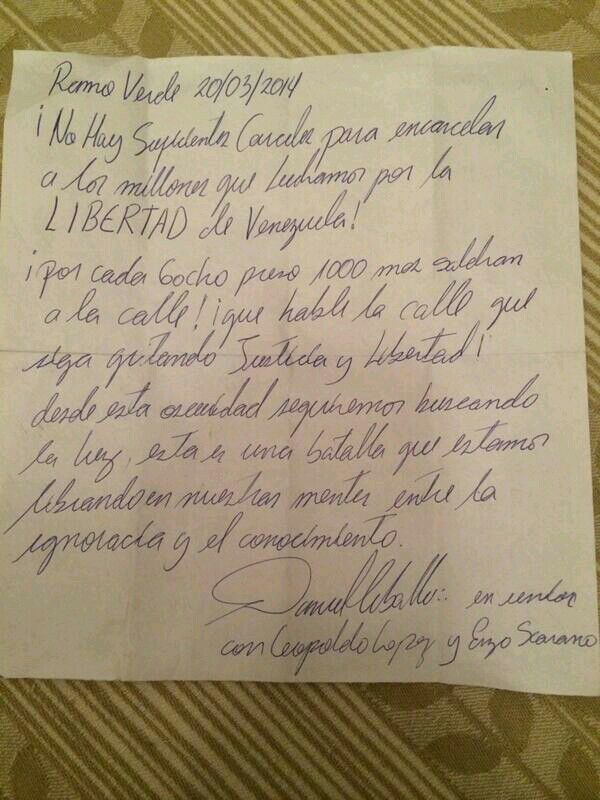 Ramo Verde 20/03/2014
¡No Hay Suficientes Carceles para encarcelar
a los millones que luchamos por la
LIBERTAD de Venezuela!
¡por cada Gocho preso 1000 mas saldran
a la calle! ¡que hable la calle que
siga gritando Justicia y Libertad!
desde esta oscuridad seguiremos buscando
la luz, esta es una batalla que estamos
librando en nuestras mentes entre la
ignoracia y el conocimiento.
Daniel Ceballos en
con Leopoldo Lopez y Enzo Scarano